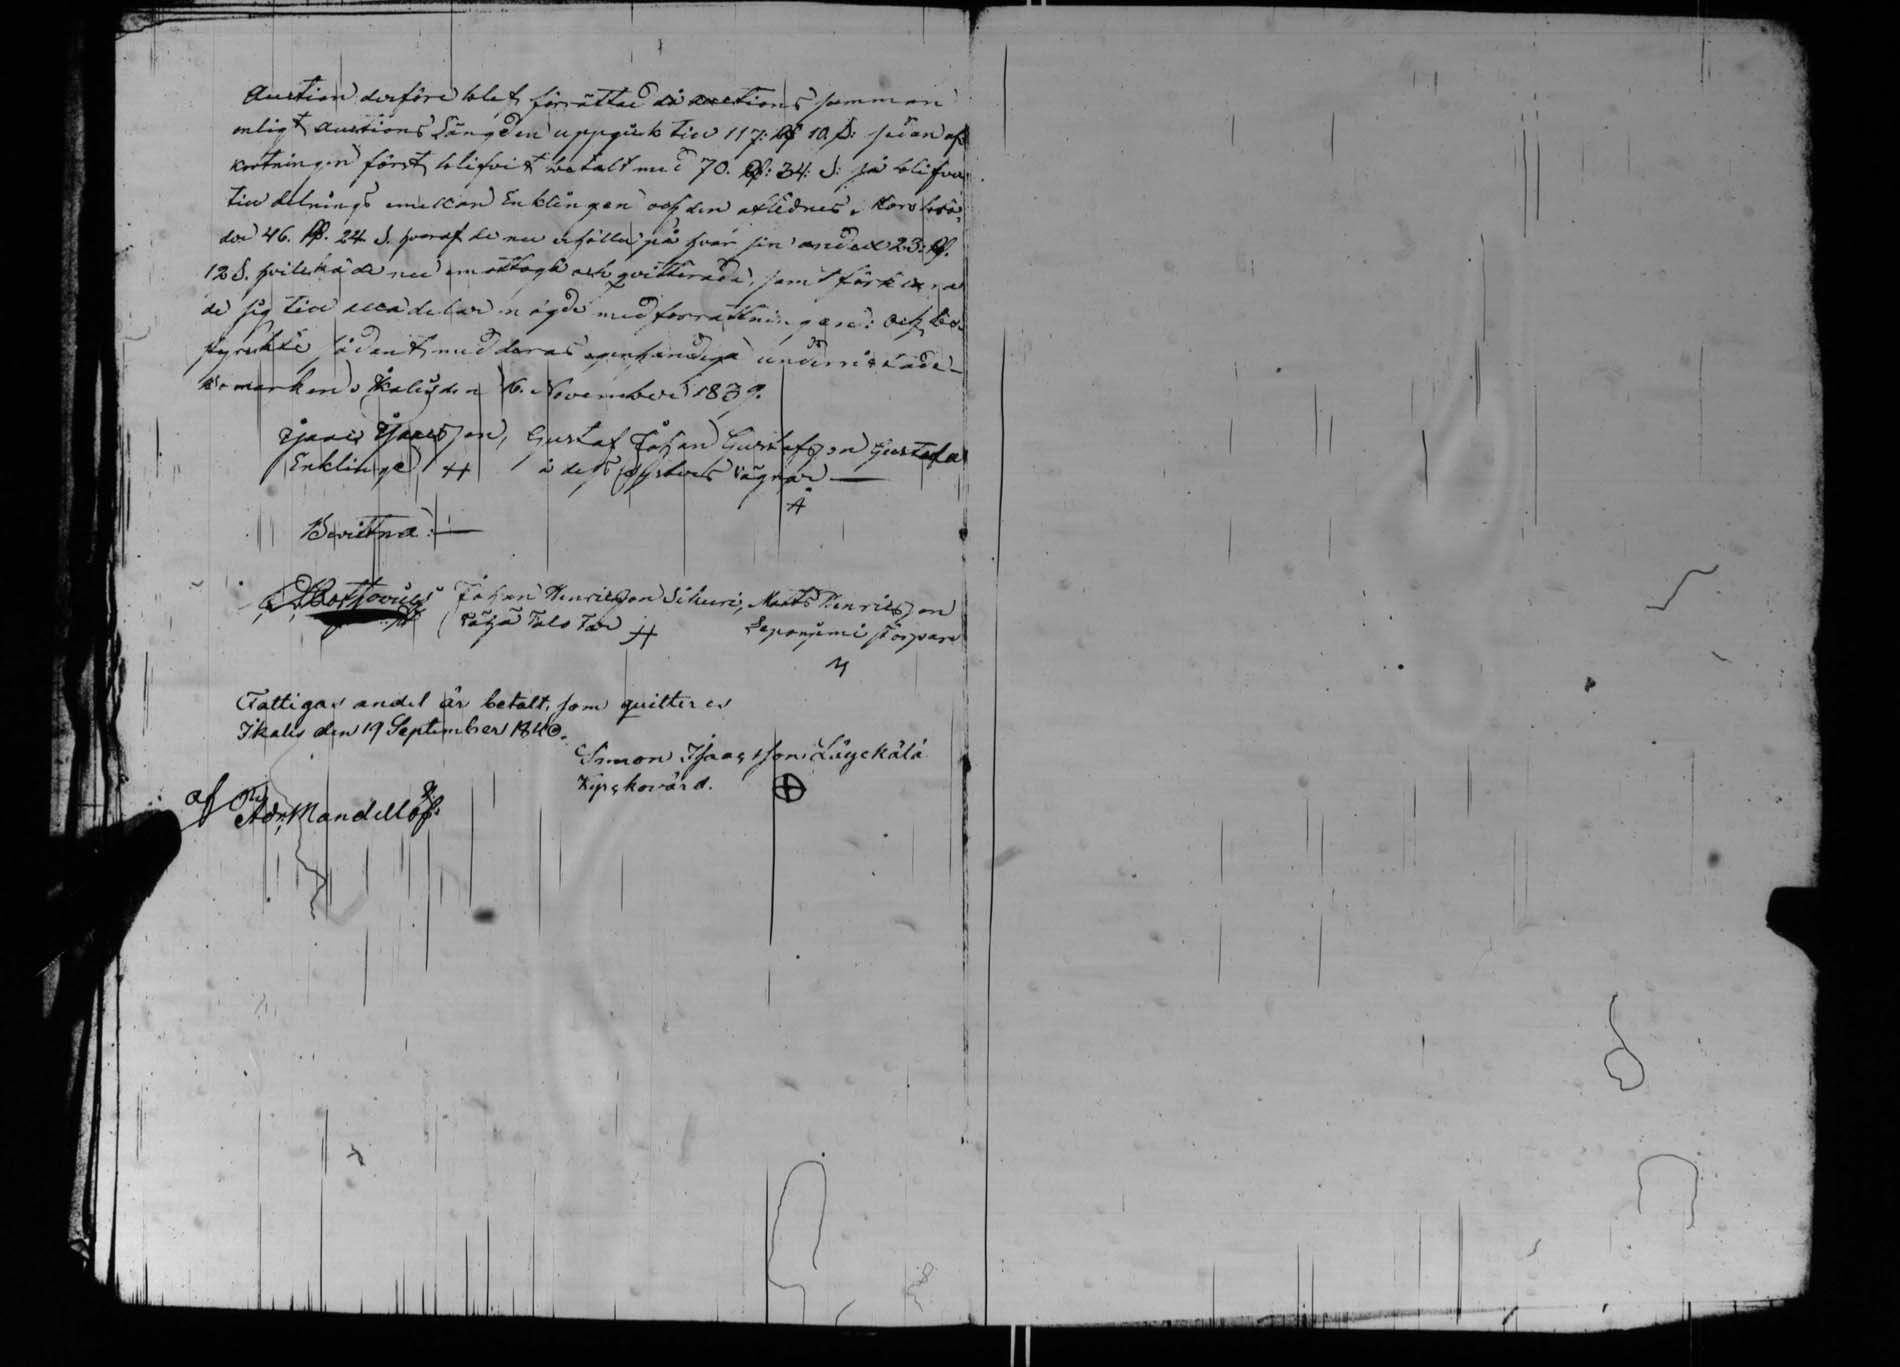 Auction derföre blef förrättad då auctions summan
enligt auctions Längden uppgick till 117: Rf 10 S: sedan af
kortningen först blifvit betalt med 70. Rf: 34: S: så blifver
till delnings emellan Enklingen och den aflednes
46. Rf. 24 S. hvaraf de nu erhåller på hvar sin andel 23: Rf.
12 S. hvilka de nu emottogo och qvitterade, samt förklara
de sig till alla delar nögde med förrättningen: och be-
styrckte sådant med deras egenhändiga underritade
bomärken, Ikalis den 16. November 1839.
Isaac Isacsson, Gustaf Johan Gustafsson Gustafa
Enklinge å des systers vägnar
Bevittna:
Johan Henricsson Sikuri, Matts Henricsson
Torpare
Fattigas andel är betalt, som quitteres
Ikalis den 19 September 1840.
Simon Isaacsson Läyckälä
Kyrckovärd.
af Adr. Mandellöf